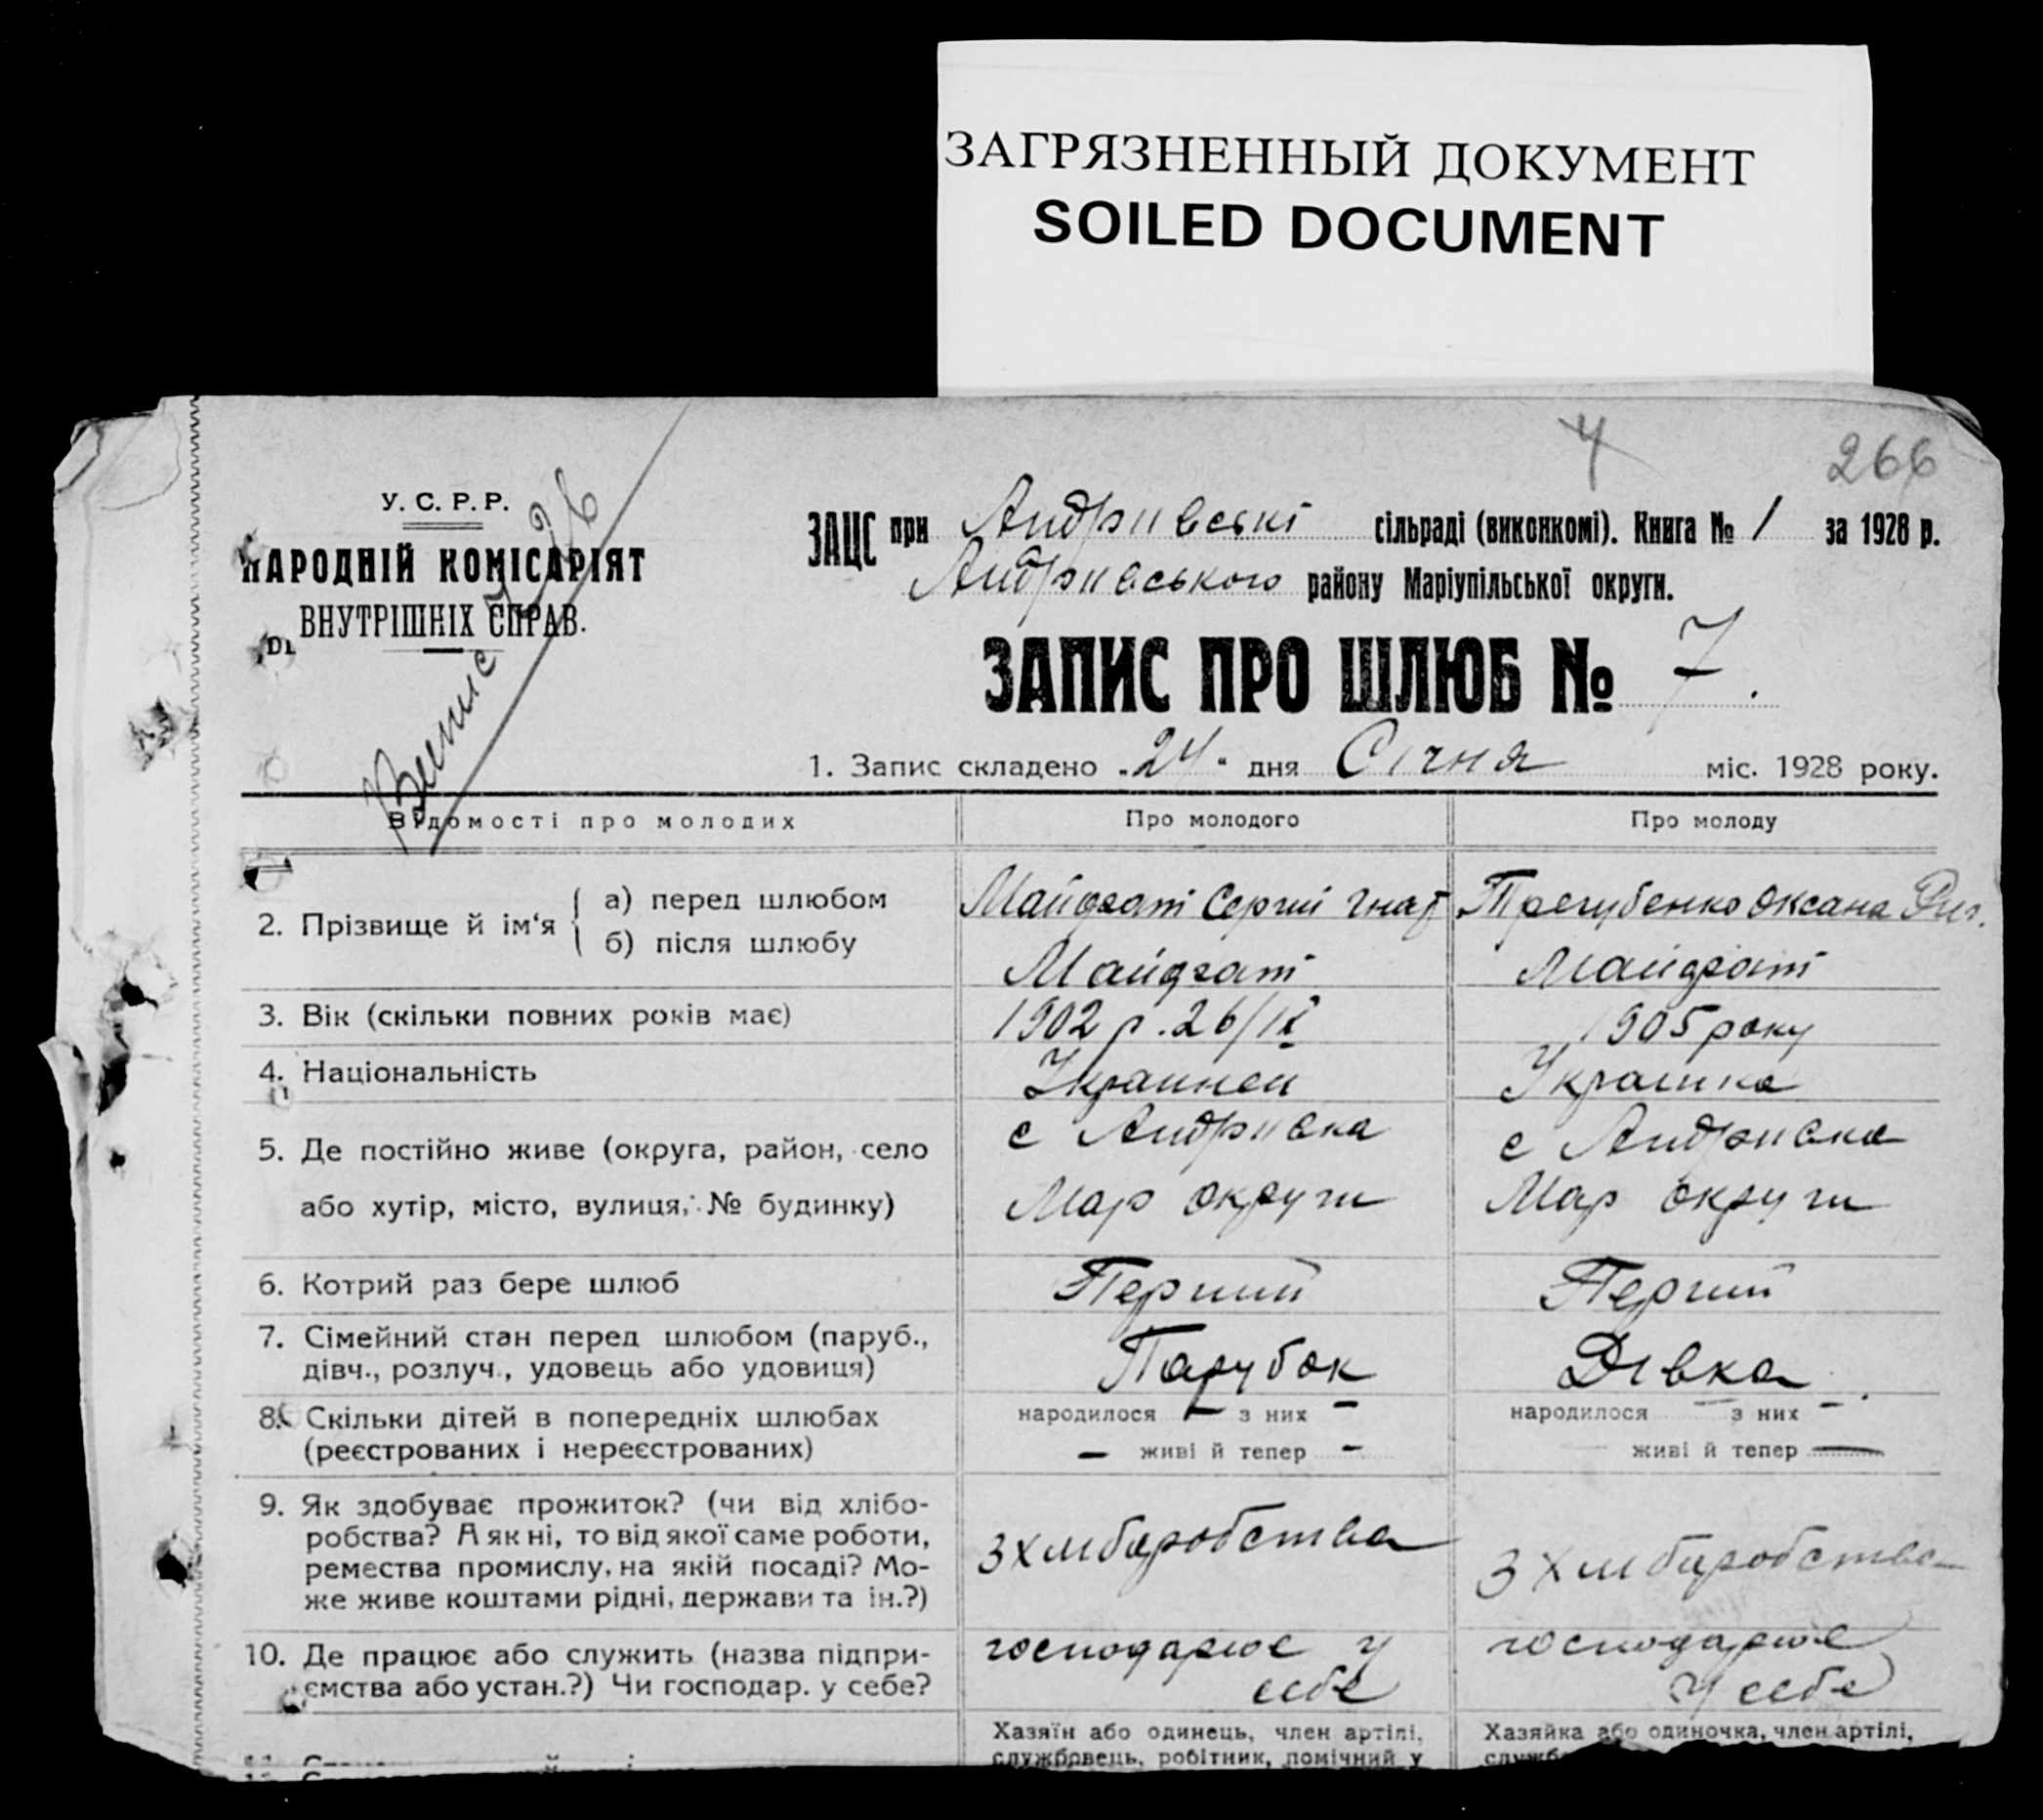 ЗАГРЯЗНЕННЫЙ ДОКУМЕНТ
SOILED DOCUMENT
4
266
У. С. Р. Р.
НАРОДНІЙ КОМІСАРІЯТ
ВНУТРІШНІХ СПРАВ.
ЗАЦС при Андриівські сільраді (виконкомі). Книга № 1 за 1928 р.
Андриівського району Маріупільської округи.
ЗАПИС ПРО ШЛЮБ № 7.
1. Запис складено „24“ дня Січня міс. 1928 року.
Відомості про молодих Про молодого Про молоду
2. Прізвище й ім‘я
а) перед шлюбом Сергий Гнат Трегубенко Оксана
б) після шлюбу
3. Вік (скільки повних років має) 1902 р. 26/IX 1905 року
4. Національність Украинец Украинка
5. Де постійно живе (округа, район, село с Андриівка с Андриівка
або хутір, місто, вулиця, № будинку) Мар округи Мар округи
6. Котрий раз бере шлюб Перший Перший
7. Сімейний стан перед шлюбом (паруб., Парубок Дівка
дівч., розлуч., удовець або удовиця)
8. Скільки дітей в попередніх шлюбах народилося – з них – народилося – з них –
(реєстрованих і нереєстрованих) – живі й тепер – живі й тепер –
9. Як здобуває прожиток? (чи від хлібо-
робства? А як ні, то від якої саме роботи, з хлиборобства з хлиборобства
ремества промислу, на якій посаді? Мо-
же живе коштами рідні, держави та ін.?)
10. Де працює або служить (назва підпри- господарює у господарює
ємства або устан.?) Чи господар. у себе? себе у себе
Хазяїн або одинець, член артілі, Хазяйка або одиночка, член артілі,
службовець, робітник, помічний у